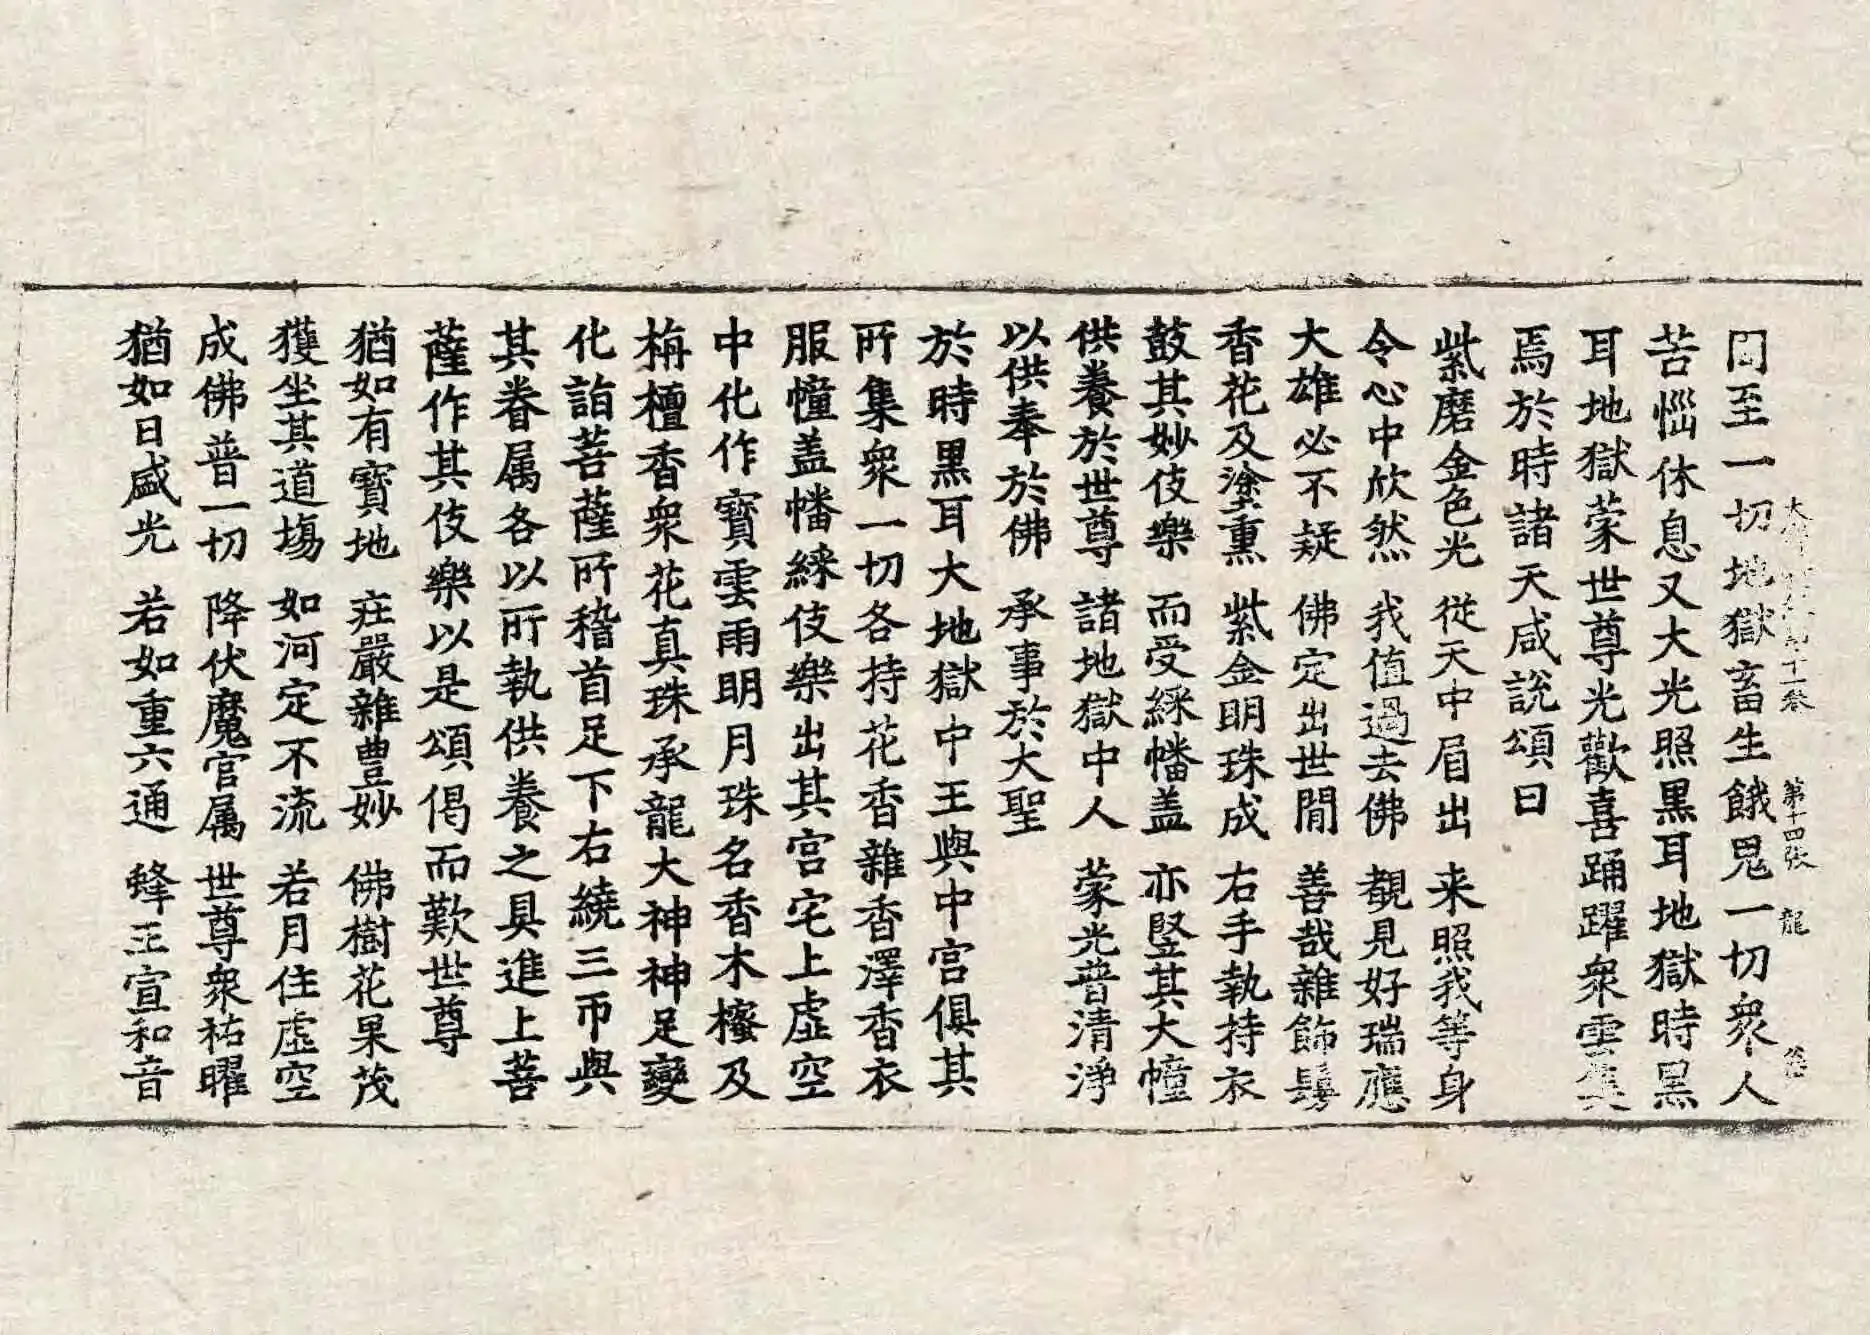 閒至一切地獄畜生餓鬼一切衆人
苦惱休息又大光照黑耳地獄時黑
耳地獄蒙世尊光歡喜踊躍衆雲集
焉於時諸天咸說頌曰
紫磨金色光　從天中眉出　来照我等身
令心中欣然　我值過去佛　覩見好瑞應
大雄必不疑　佛定出世閒　善哉雜飾髦
香花及塗熏　紫金明珠成　右手執持衣
鼓其妙伎樂　而受綵幡盖　亦竪其大幢
供養於世尊　諸地獄中人　蒙光普清淨
以供奉於佛　承事於大聖
於時黑耳大地獄中王與中宫俱其
所集衆一切各持花香雜香澤香衣
服幢盖幡綵伎樂出其宫宅上虚空
中化作寶雲雨明月珠名香木櫁及
栴檀香衆花真珠承龍大神神足變
化詣菩薩所稽首足下右繞三帀與
其眷属各以所執供養之具進上菩
薩作其伎樂以是頌偈而歎世尊
猶如有寶地　莊嚴雜豊妙　佛樹花果茂
獲坐其道場　如河定不流　若月住虚空
成佛普一切　降伏魔官属　世尊衆祐曜
猶如日盛光　若如重六通　蜂王宣和音
第十四张　龍